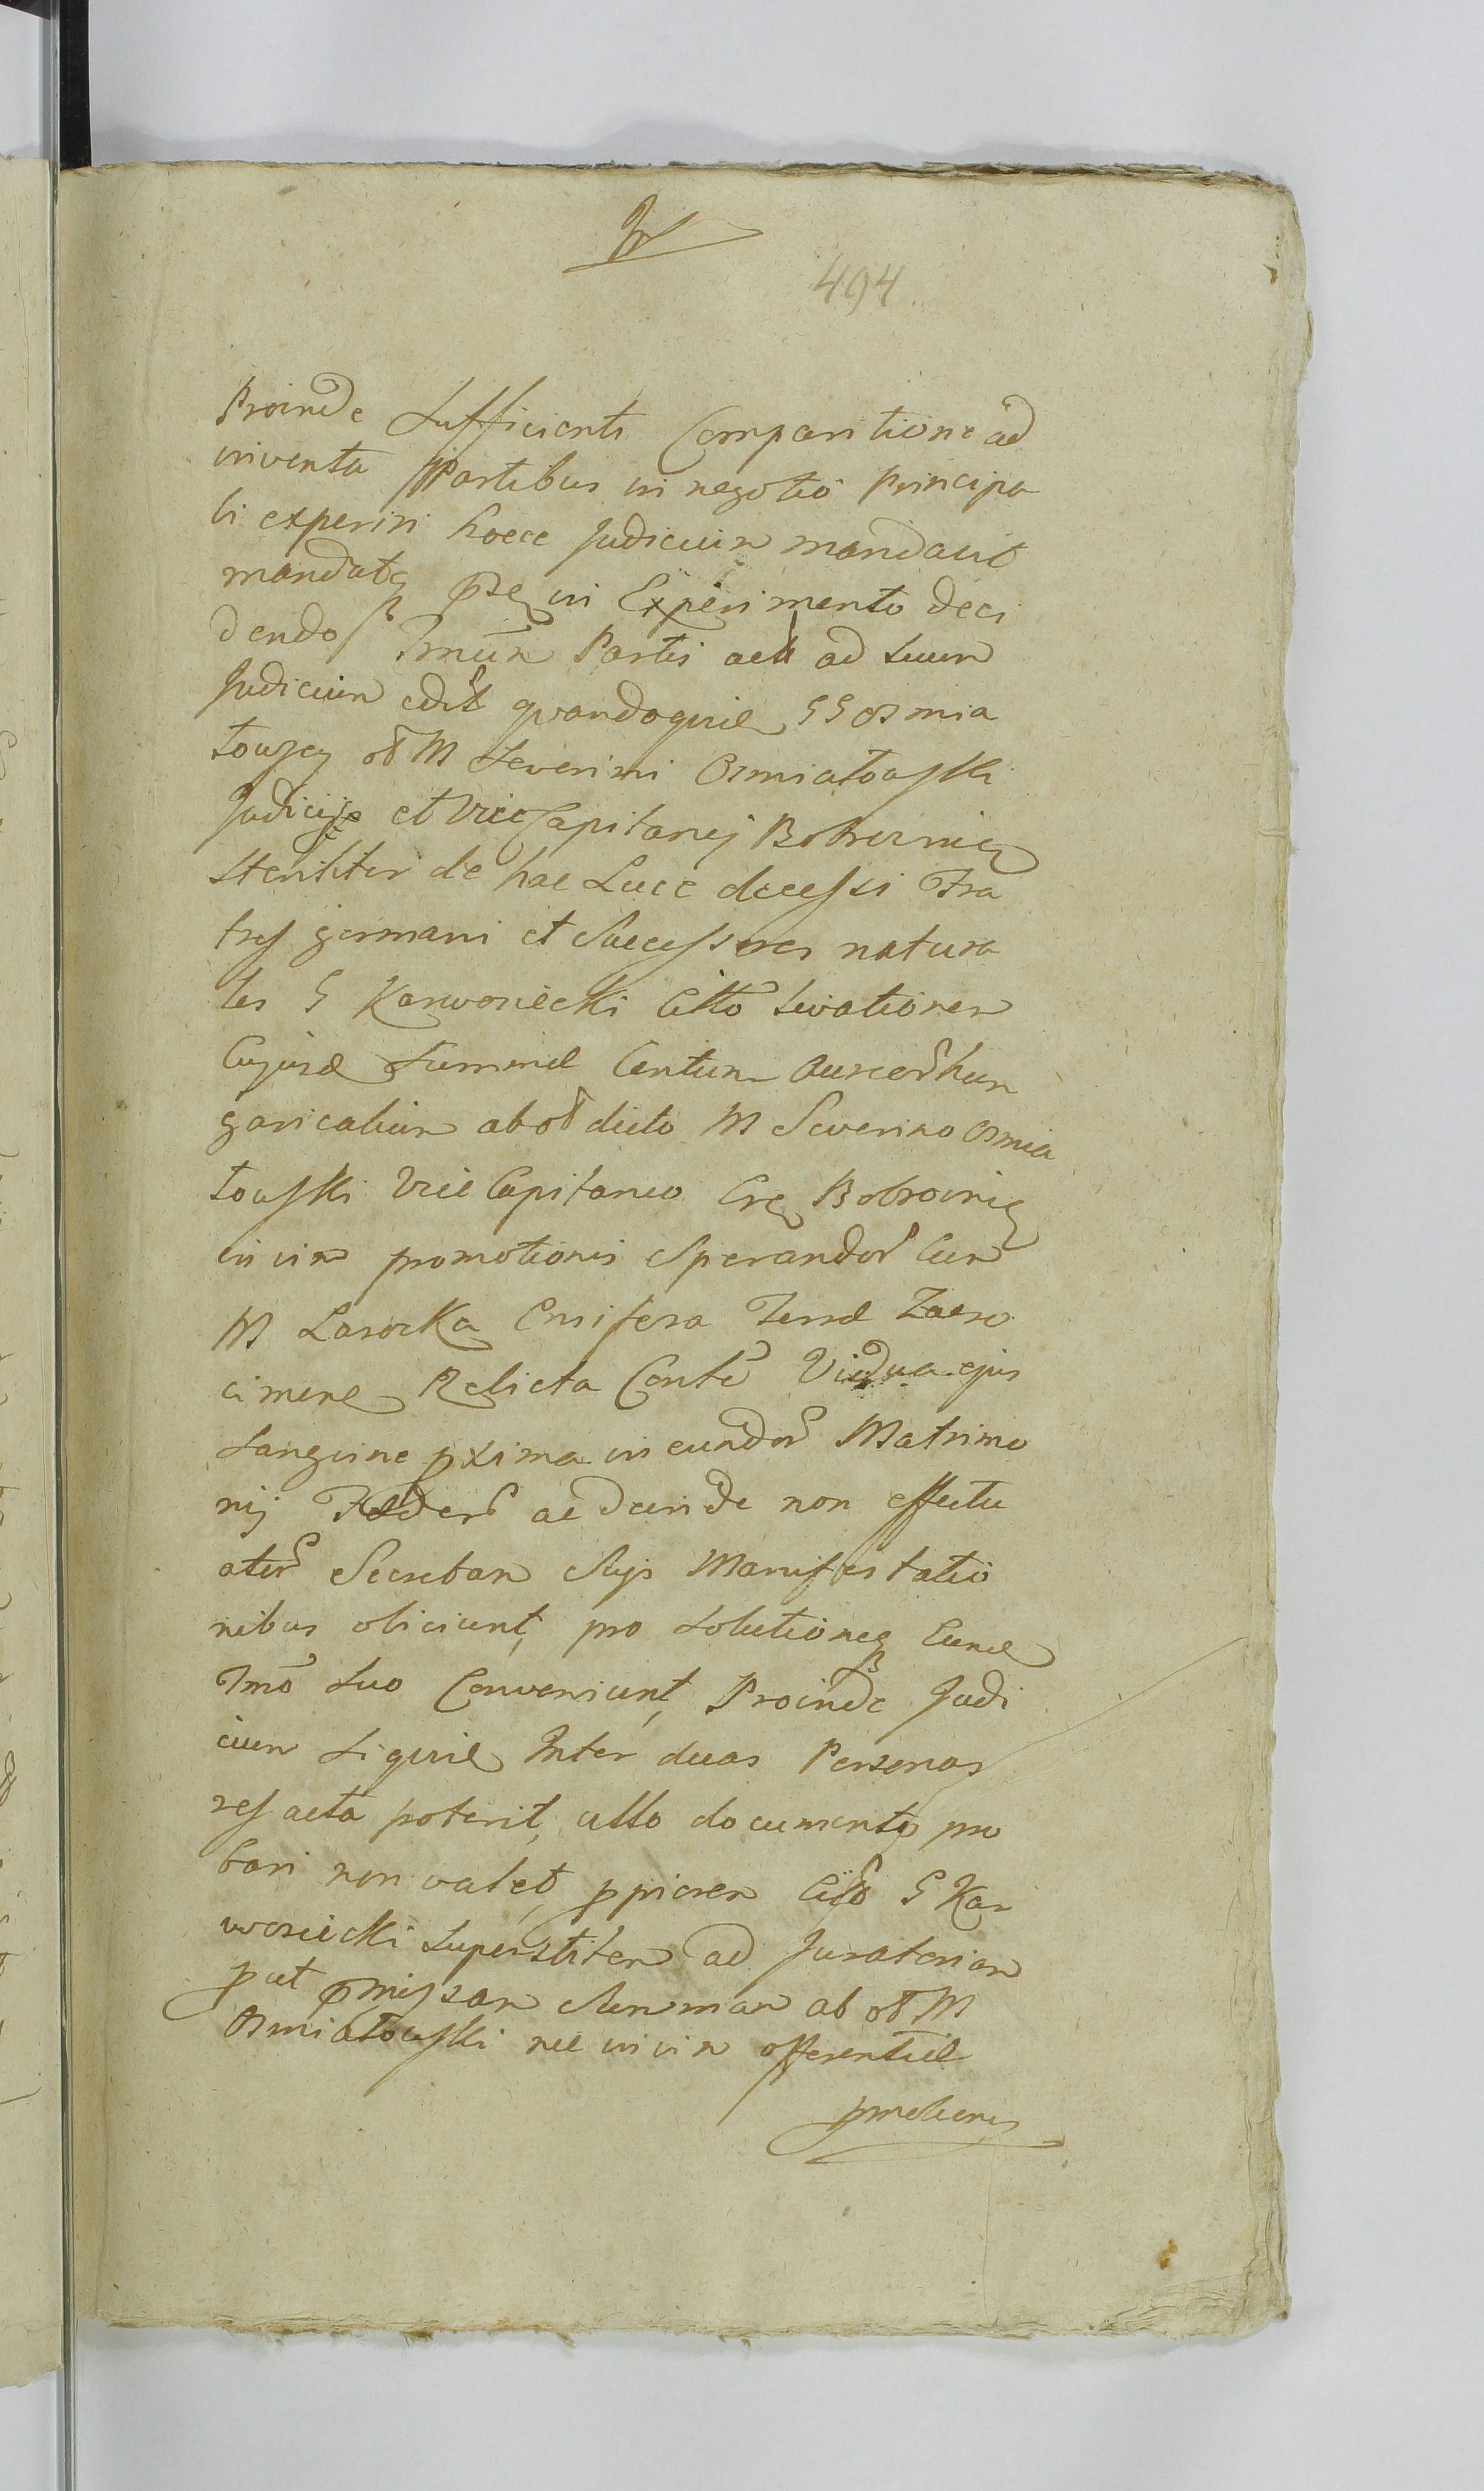 494
Proinde Sufficienti Comparitione ad
inventa Partibus in negotio principa
li experiri hocce Judicium mandavit
mandatq in Experimento deci
dendo Partis ad suum
Judicium quandoquid GG Osmia
towscy M Severini Osmiatowski
Judicis et Vice Capitanej Bobrownic
steriliter de hac Luce decessi Fra
tres germani et Successores natura
les G Karwosiecki Citto levationem
Cujusd Summae Centum Aureor hun
garicalium ab dicto M Severino Osmia
towski Vice Capitaneo Crs Bobrownic
in vim promotionis Sperandor Cum
M Lasocka Ensifera Terrae Zawo
Relicta Vidua ejus
Sanguine pxima in eundor Matrimo
nij Foeder ac deinde non effectu
ator Secutban Suis Manifestatio
nibus obiciunt, pro Solutioneq Eund
Suo Conveniunt, Proinde Judi
cium Siquid Inter duas Personas
res acta poterit, ullo documento pro
bari non valet, ppiorem G Kar
wosiecki Superstitem ad Juratoriam
put Summam ab M
Osmiatowski nec in vim offerentiae